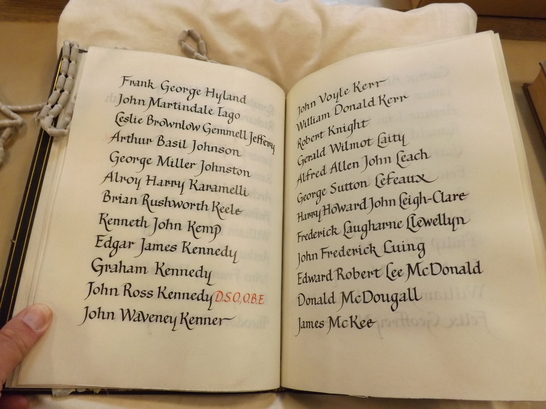 Frank George Hyland
John Martindale Iago
Leslie Brownlow Gemmell Jeffery
Arthur Basil Johnson
George Miller Johnston
Alroy Harry Karamelli
Brian Rushworth Keele
Kenneth John Kemp
Edgar James Kennedy
Graham Kennedy
John Ross Kennedy D.S.O, O.B.E
John Waveney Kenner
John Voyle Kerr
William Donald Kerr
Robert Knight
Gerald Wilmot Laity
Alfred Allen John Leach
George Sutton LeFeaux
Harry Howard John Leigh-Clare
Frederick Laugharne Llewellyn
John Frederick Luing
Edward Robert Lee McDonald
Donald McDougall
James McKee